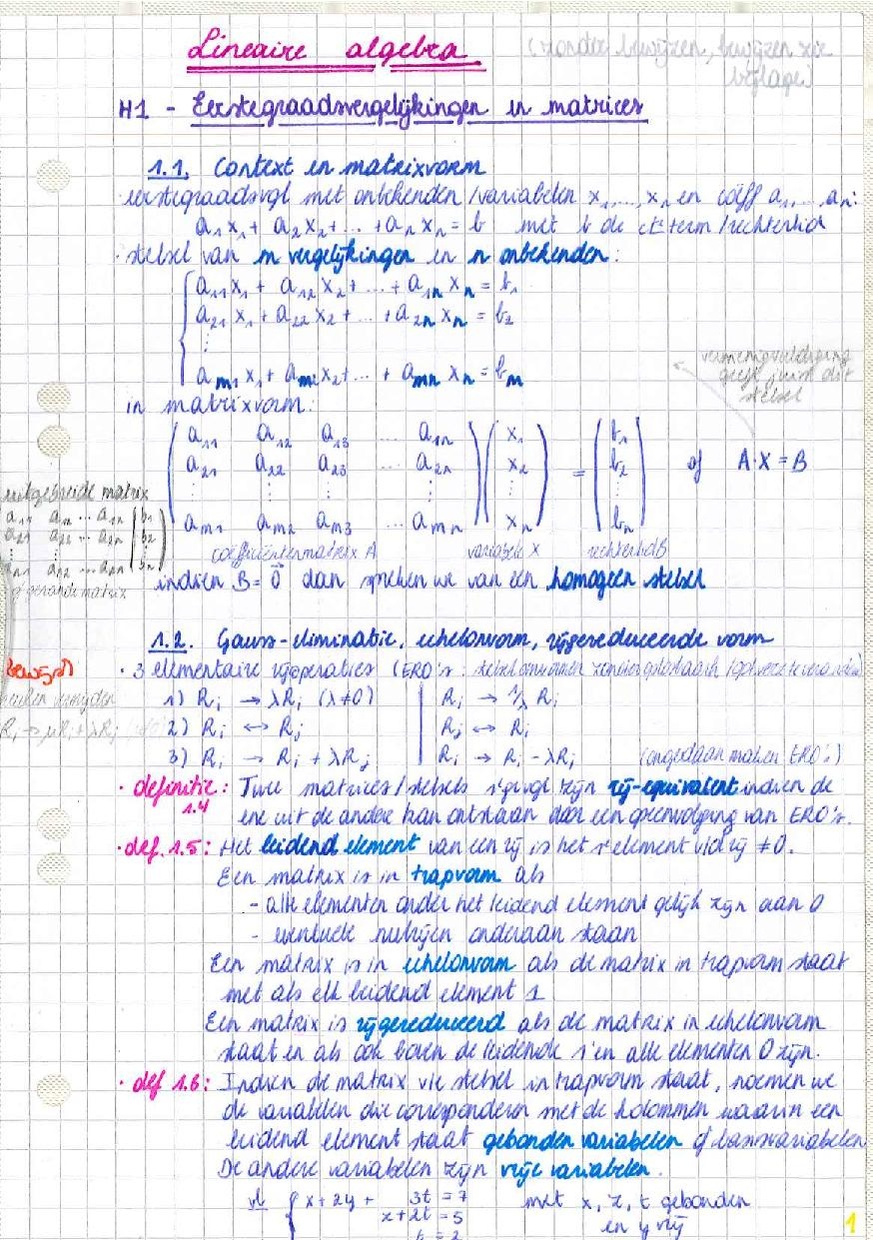 Lineaire algebra
(zonder bewijzen, bewijzen zie
bijlage)
H1 - Eerstegraadsvergelijkingen en matrices
1.1. Context en matrixvorm
· eerstegraadsvgl met onbekenden/variabelen x₁,...,xₙ en coëff a₁,...,aₙ:
a₁x₁ + a₂x₂ + ... + aₙxₙ = b met b de cte term/rechterlid
· stelsel van m vergelijkingen en n onbekenden:
a₁₁x₁ + a₁₂x₂ + ... + a₁ₙxₙ = b₁
a₂₁x₁ + a₂₂x₂ + ... + a₂ₙxₙ = b₂
⋮
aₘ₁x₁ + aₘ₂x₂ + ... + aₘₙxₙ = bₘ
vermenigvuldiging
geeft juist dit
stelsel
in matrixvorm:
a₁₁ a₁₂ a₁₃ ... a₁ₙ x₁ b₁
a₂₁ a₂₂ a₂₃ ... a₂ₙ x₂ = b₂ of A·X = B
⋮ ⋮ ⋮ ⋮ ⋮ ⋮
aₘ₁ aₘ₂ aₘ₃ ... aₘₙ xₙ bₙ
coëfficiëntenmatrix A variabele X rechterlid B
uitgebreide matrix
a₁₁ a₁₂ ... a₁ₙ | b₁
a₂₁ a₂₂ ... a₂ₙ | b₂
⋮ ⋮ ⋮ ⋮
aₙ₁ aₙ₂ ... aₙₙ | bₙ
of gerande matrix
indien B = 0⃗ dan spreken we van een homogeen stelsel
1.2. Gauss-eliminatie, echelonvorm, rijgereduceerde vorm
bewijs)
· 3 elementaire rijoperaties (ERO's: stelsel omvormen zonder oplossingsverz te veranderen)
1) Rᵢ → λRᵢ (λ≠0) | Rᵢ → 1/λ Rᵢ
vermijden
Rᵢ → μRᵢ + λRⱼ
2) Rᵢ ↔ Rⱼ | Rⱼ ↔ Rᵢ
3) Rᵢ → Rᵢ + λRⱼ | Rᵢ → Rᵢ - λRⱼ (ongedaan maken ERO's)
· definitie: Twee matrices/stelsels v vgl zijn rij-equivalent indien de
1.4
ene uit de andere kan ontstaan door een opeenvolging van ERO's.
· def. 1.5: Het leidend element van een rij is het 1e element v/d rij ≠ 0.
Een matrix is in trapvorm als
- alle elementen onder het leidend element gelijk zijn aan 0
- eventuele nulrijen onderaan staan
Een matrix is in echelonvorm als de matrix in trapvorm staat
met als elk leidend element 1
Een matrix is rijgereduceerd als de matrix in echelonvorm
staat en als ook boven de leidende 1'en alle elementen 0 zijn.
· def 1.6: Indien de matrix v/e stelsel in trapvorm staat, noemen we
de variabelen die corresponderen met de kolommen waarin een
leidend element staat gebonden variabelen of basisvariabelen
De andere variabelen zijn vrije variabelen.
vb x + 2y + 3t = 7 met x, z, t gebonden
z + 2t = 5 en y vrij
t = 2
1